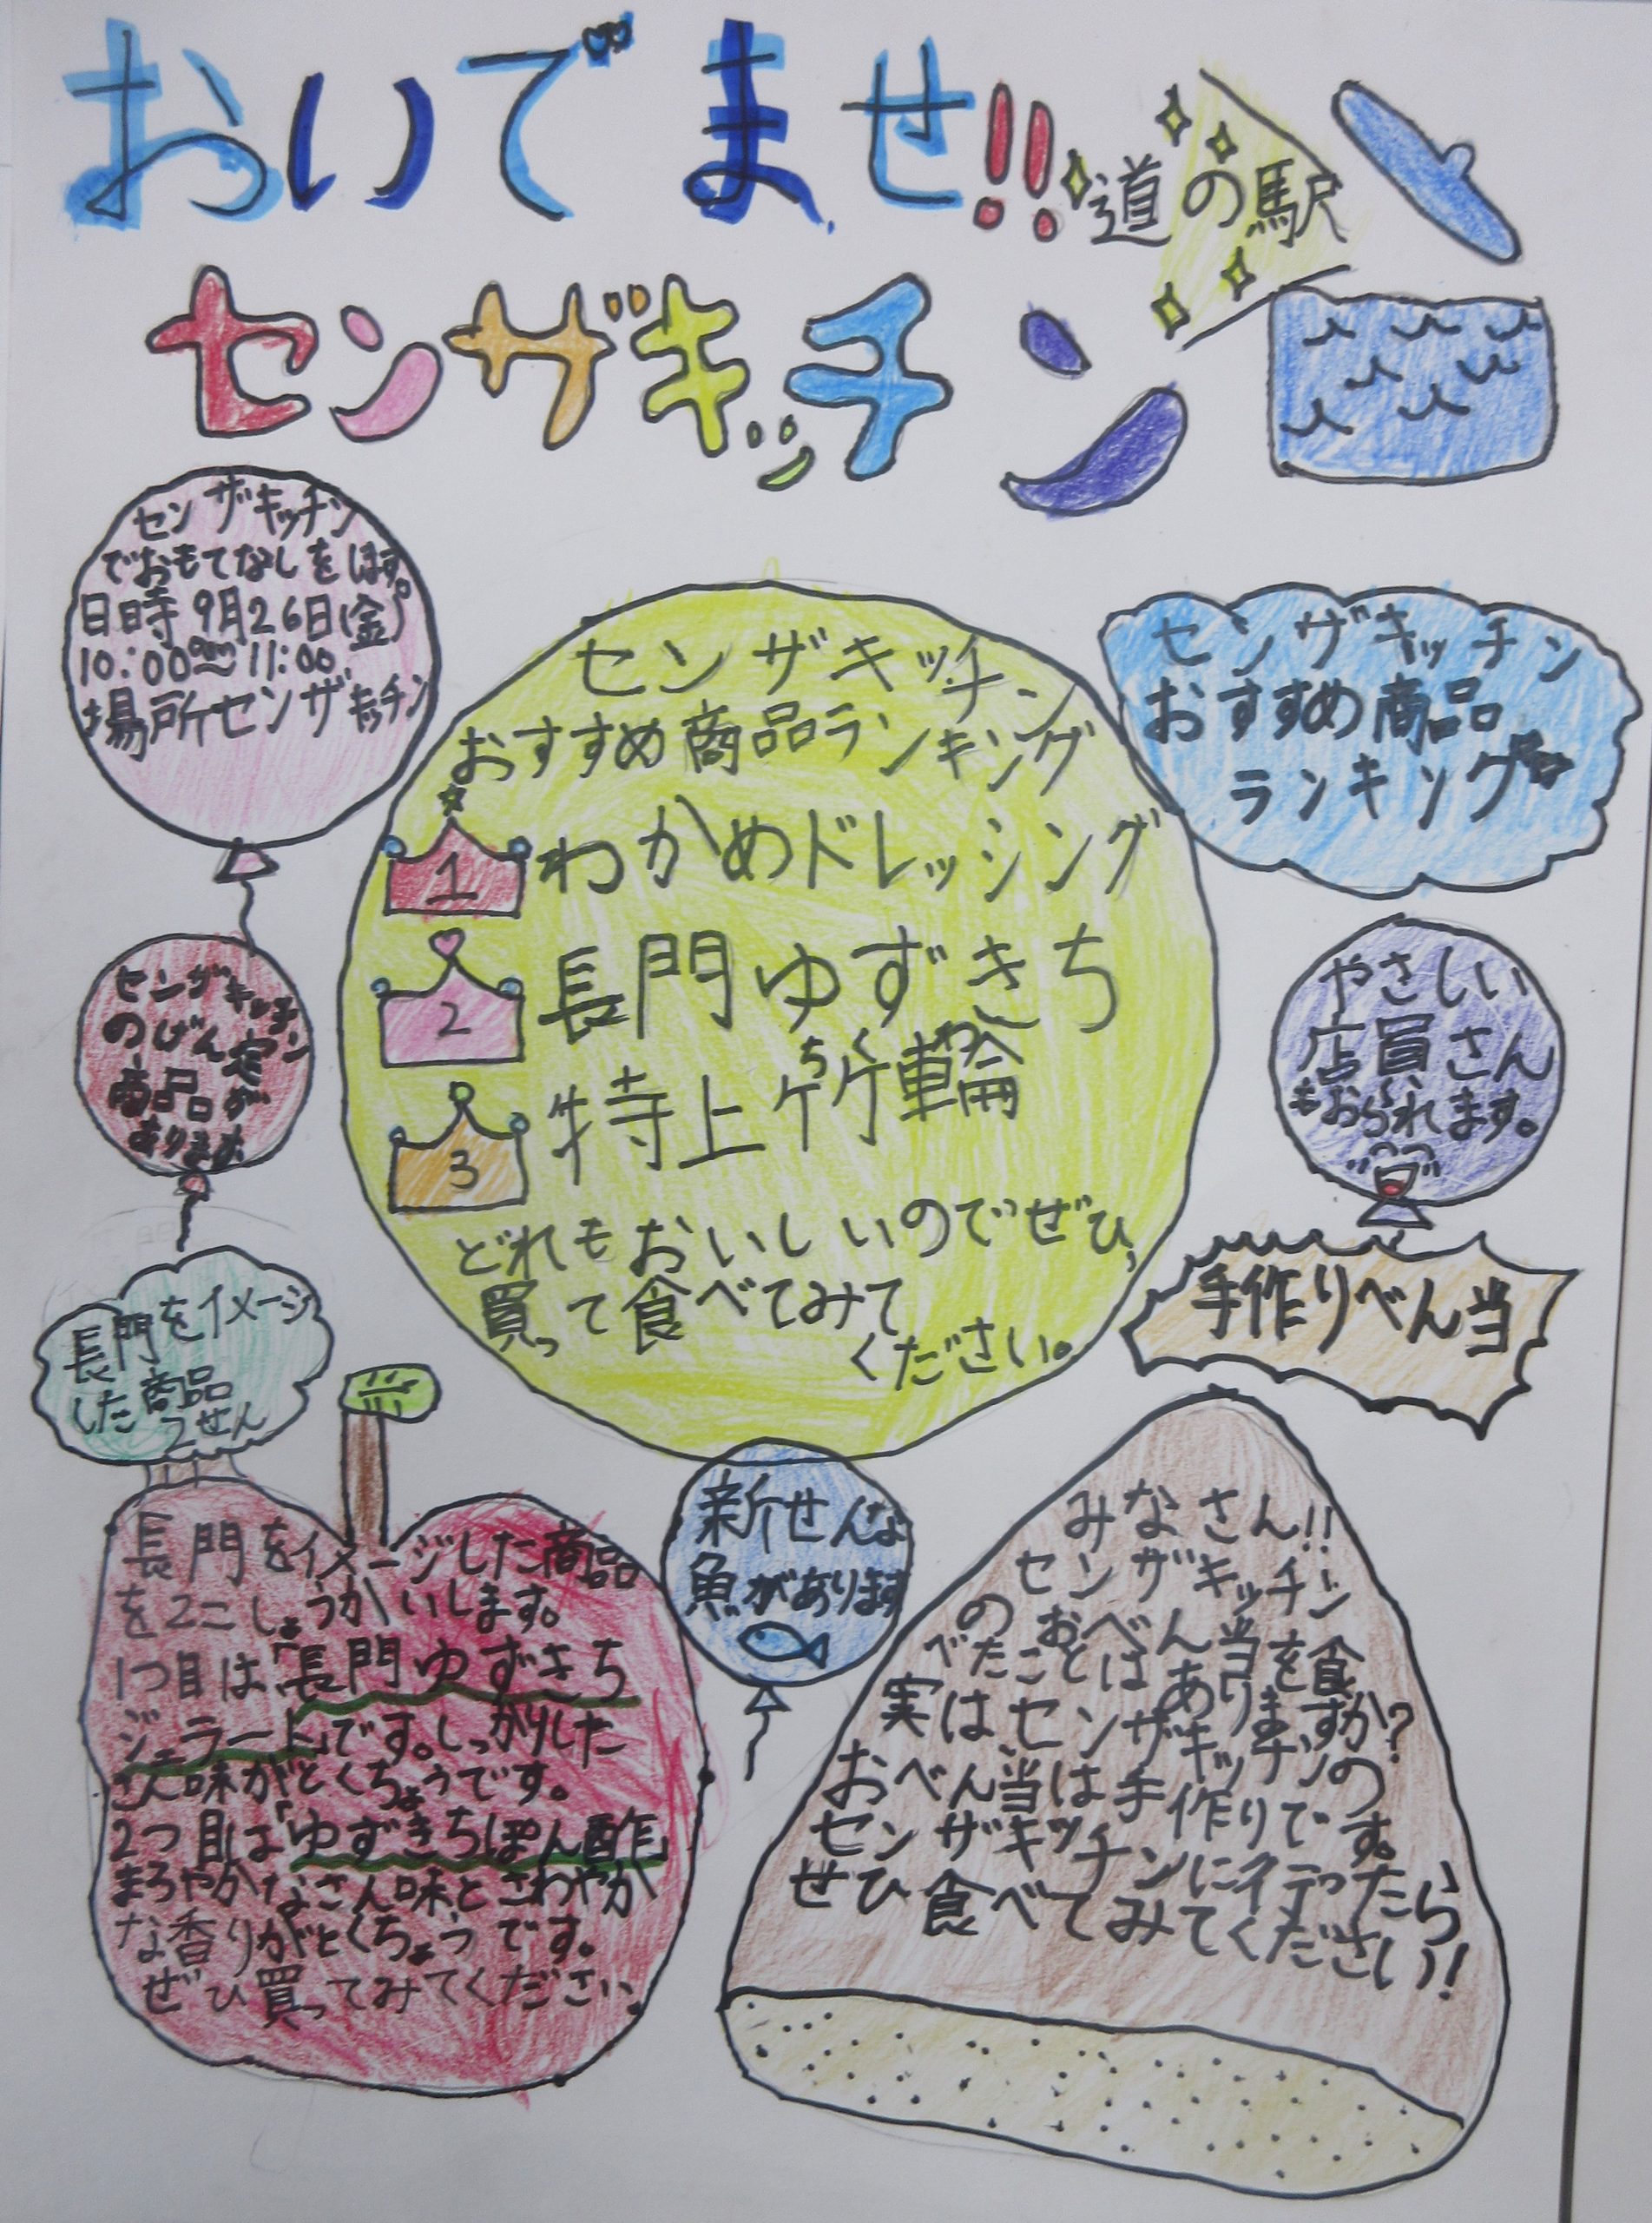 おいでませ!!
道の駅
センザキッチン
センザキッチン
でおもてなしをします。
日時 9月26日(金)
10:00〜11:00
場所センザキッチン
センザキッチン
おすすめ商品ランキング
1 わかめドレッシング
2 長門ゆずきち
3 特上竹輪
ちくわ
どれもおいしいのでぜひ、
買って食べてみて
ください。
センザキッチン
おすすめ商品
ランキング
センザキッチン
のげん定
商品が
あります
やさしい
店員さん
もおられます。
長門をイメージ
した商品
2せん
手作りべん当
長門をイメージした商品
を2こしょうかいします。
1つ目は「長門ゆずきち
ジェラート」です。しっかりした
さん味がとくちょうです。
2つ目は「ゆずきちぽん酢」
まろやかなさん味とさわやか
な香りがとくちょうです。
ぜひ買ってみてください。
新せんな
魚があります
みなさん!!
センザキッチン
のおべん当を食
べたことはありますか?
実は、センザキッチンの
おべん当は手作りです。
センザキッチンに行ったら
ぜひ食べてみてください!